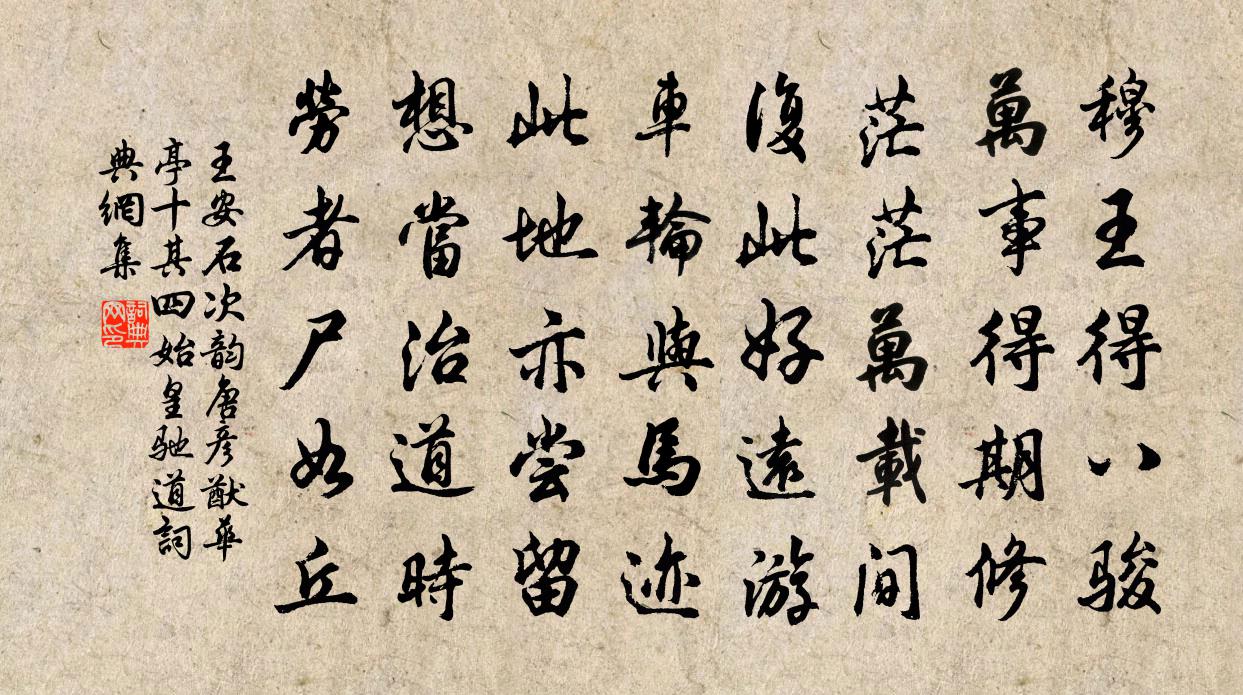 穆王得八骏
萬事得期修
茫茫萬載間
復此好遠游
車輪與馬迹
此地亦嘗留
想當治道時
勞者尸如丘
王安石次韵唐彦猷華
亭十其四始皇驰道詞
典網集
詞典网印